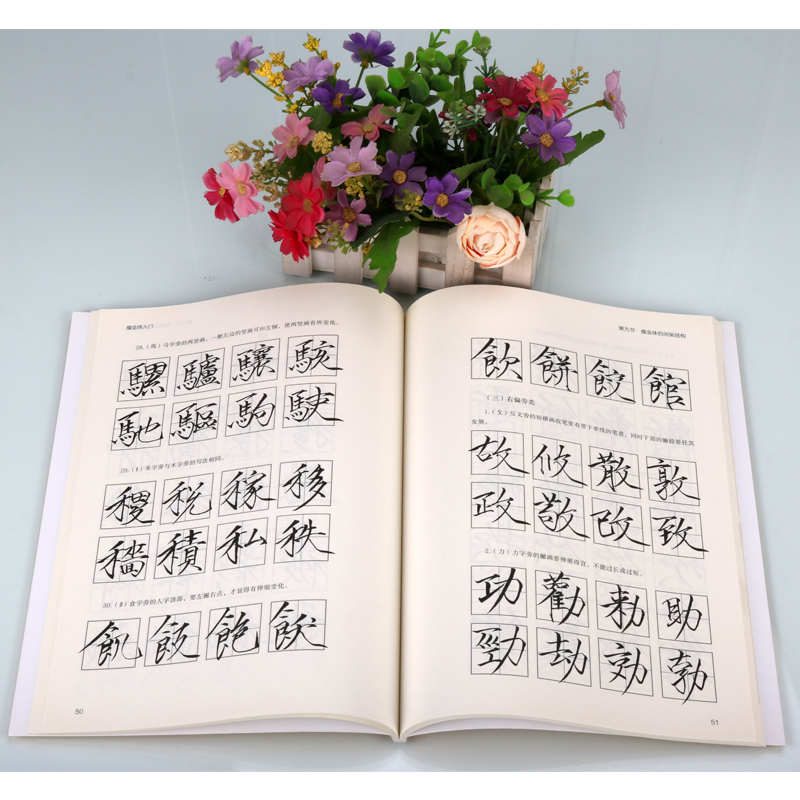 瘦金体入门
28.(馬)马字旁的两竖画,一般左边的竖画可向左倾,使两竖画有所变化。
騾 驢 驤 駭
馳 驅 駒 駛
29.(禾)禾字旁与木字旁的写法相同。
稷 税 稼 移
穡 積 私 秩
30.(飠)食字旁的人字顶部,要左撇右点,才显得有伸缩变化。
飢 飯 飽 飫
50
第九节 瘦金体的间架结构
飲 餅 餃 館
(三)右偏旁类
1.(攵)反文旁的短横画收笔要有带下垂线的笔意,同时下部的撇捺要任其
发展。
故 攸 散 敦
政 敬 改 致
2.(力)力字旁的撇画要伸展得宜,不能过长或过短。
功 勸 勑 助
勁 劫 効 勃
51